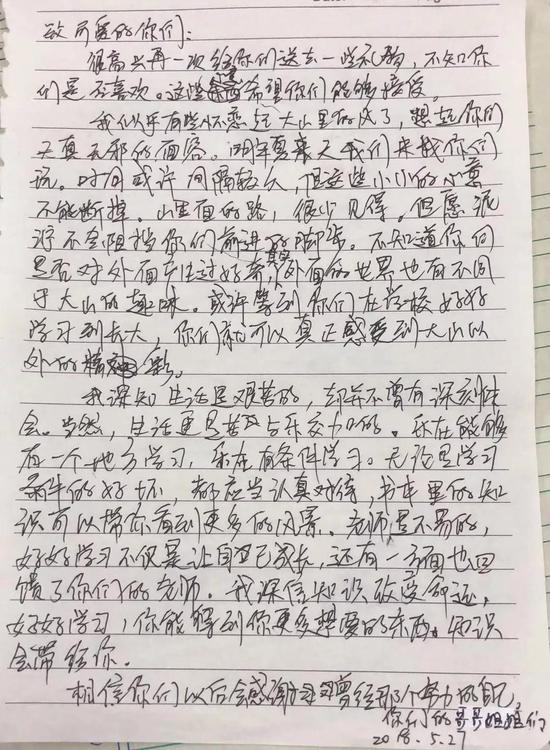 致可爱的你们:
很高兴再一次给你们送去一些礼物,不知你
们是否喜欢。这些东西希望你们能够接受。
我似乎有些怀恋起大山里的风了,想起你们
天真无邪的面容。明年夏天我们来找你们
玩。时间或许间隔较久,但这些小小的心意
不能断掉。山里面的路,很少见得。但愿泥
泞不会阻挡你们前进的脚步。不知道你们
是否对外面产生过好奇,其实外面的世界也有不同
于大山的趣味。或许等到你们在学校好好
学习到长大,你们就可以真正感受到大山以
外的精彩。
我深知生活是艰苦的,却并不曾有深刻体
会。当然,生活更是苦与乐交加的。乐在能够
有一个地方学习,乐在有条件学习。无论是学习
条件的好坏,都应当认真对待,书本里的知
识可以带你看到更多的风景。老师是不易的,
好好学习不仅是让自己成长,还有一方面也回
馈了你们的老师。我深信知识改变命运,
好好学习,你能得到你更多想要的东西,知识
会带给你。
相信你们以后会感谢曾经那个努力的自己
你们的哥哥姐姐们
2018.5.27